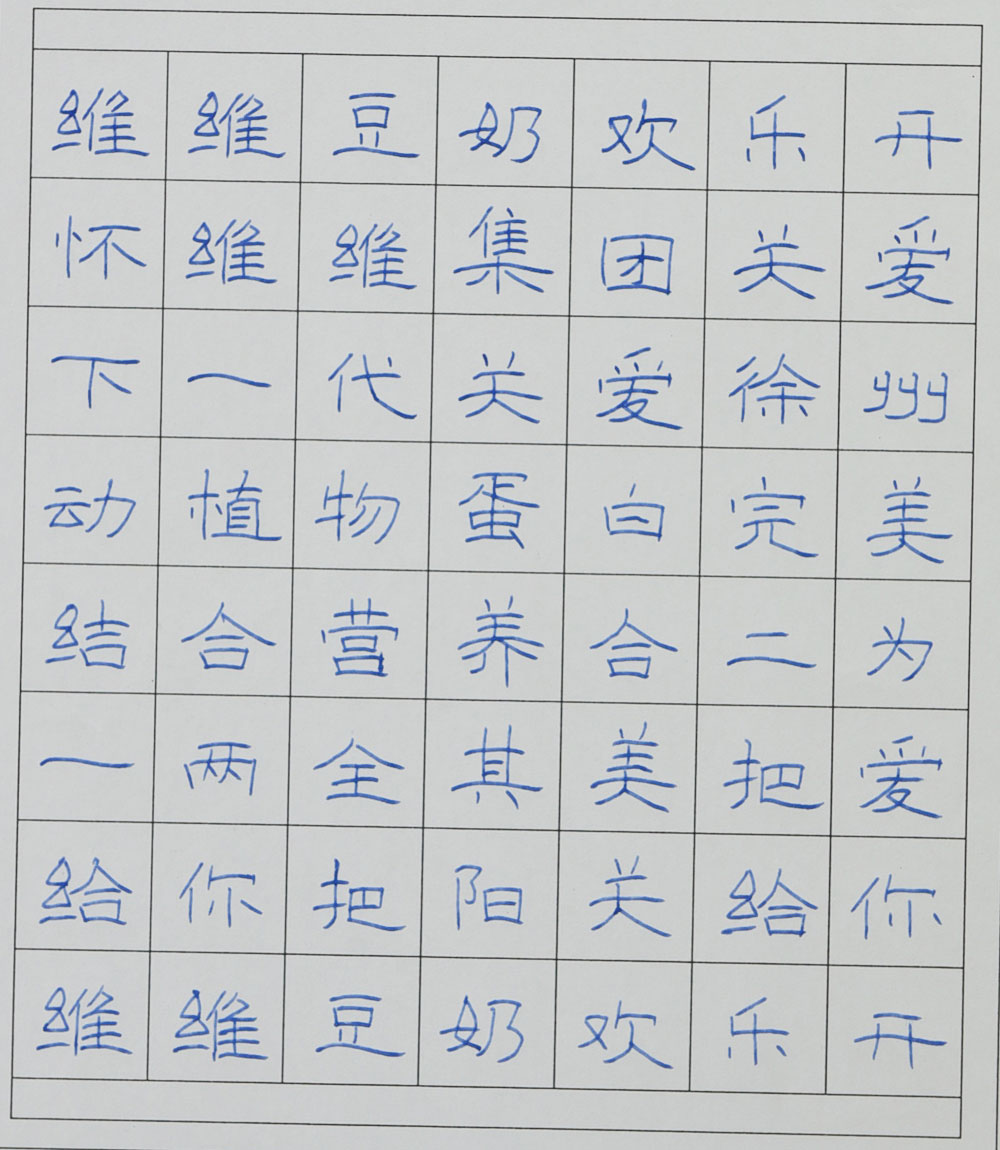 维维豆奶欢乐开
怀维维集团关爱
下一代关爱徐州
动植物蛋白完美
结合营养合二为
一两全其美把爱
给你把阳关给你
维维豆奶欢乐开